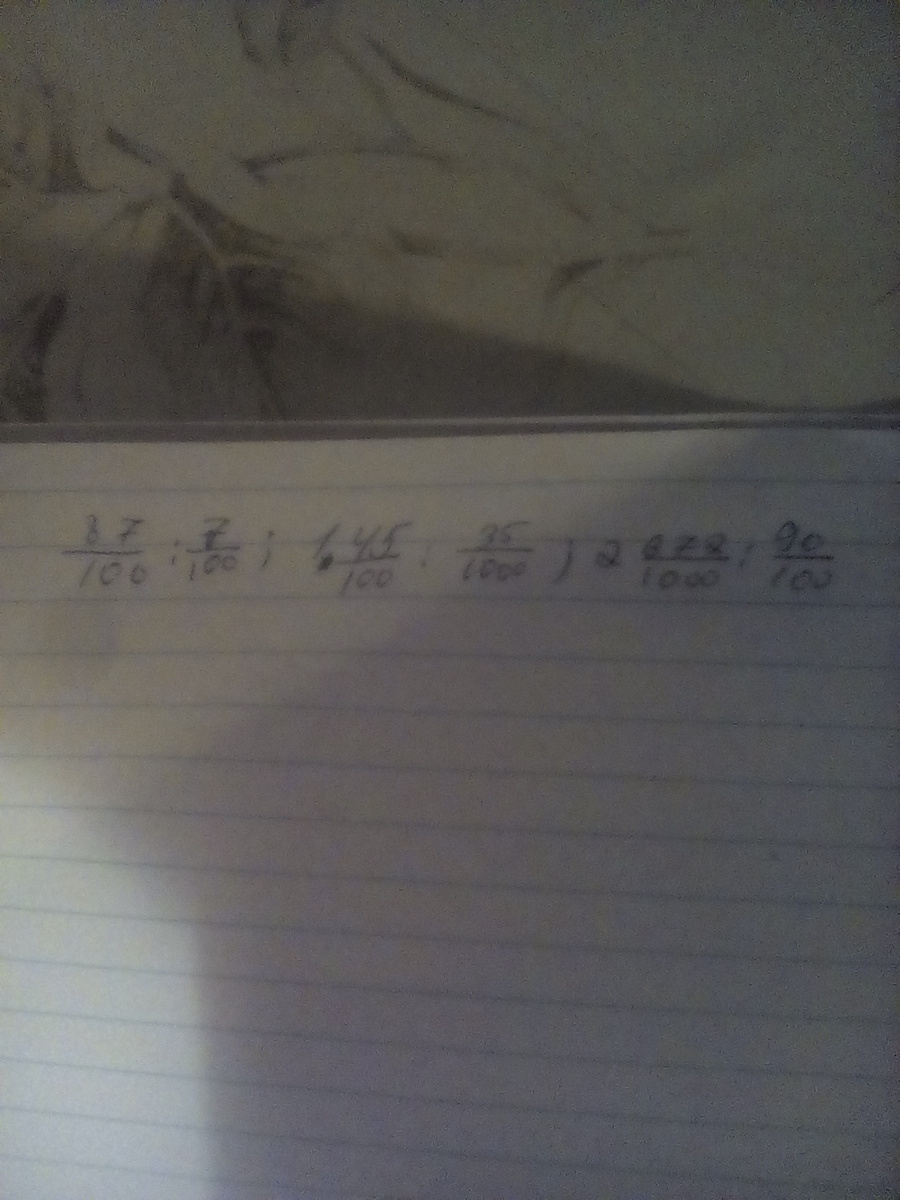 87/100 ; 7/100 ; 1 45/100 ; 35/1000 ; 2 878/1000 ; 90/100